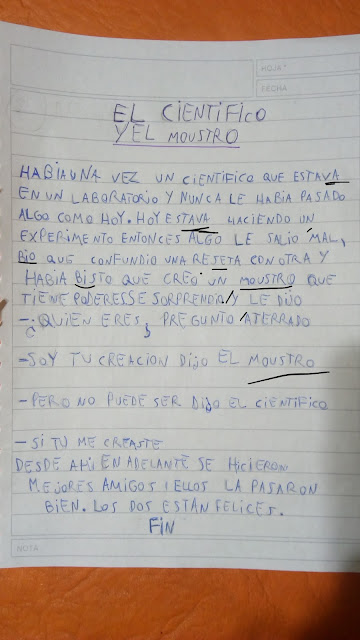 HOJA:
FECHA
EL CIENTIFICO
Y EL MOUSTRO
HABIA UNA VEZ UN CIENTIFICO QUE ESTAVA
EN UN LABORATORIO Y NUNCA LE HABIA PASADO
ALGO COMO HOY. HOY ESTAVA HACIENDO UN
EXPERIMENTO ENTONCES ALGO LE SALIO MAL,
BIO QUE CONFUNDIO UNA RESETA CON OTRA Y
HABIA BISTO QUE CREO UN MOUSTRO QUE
TIENE PODERES SE SORPRENDIO/Y LE DIJO
-¿QUIEN ERES, PREGUNTO/ATERRADO
-SOY TU CREACION DIJO EL MOUSTRO
-PERO NO PUEDE SER DIJO EL CIENTIFICO
-SI TU ME CREASTE
DESDE AHI EN ADELANTE SE HICIERON
MEJORES AMIGOS I ELLOS LA PASARON
BIEN. LOS DOS ESTAN FELICES.
FIN
NOTA